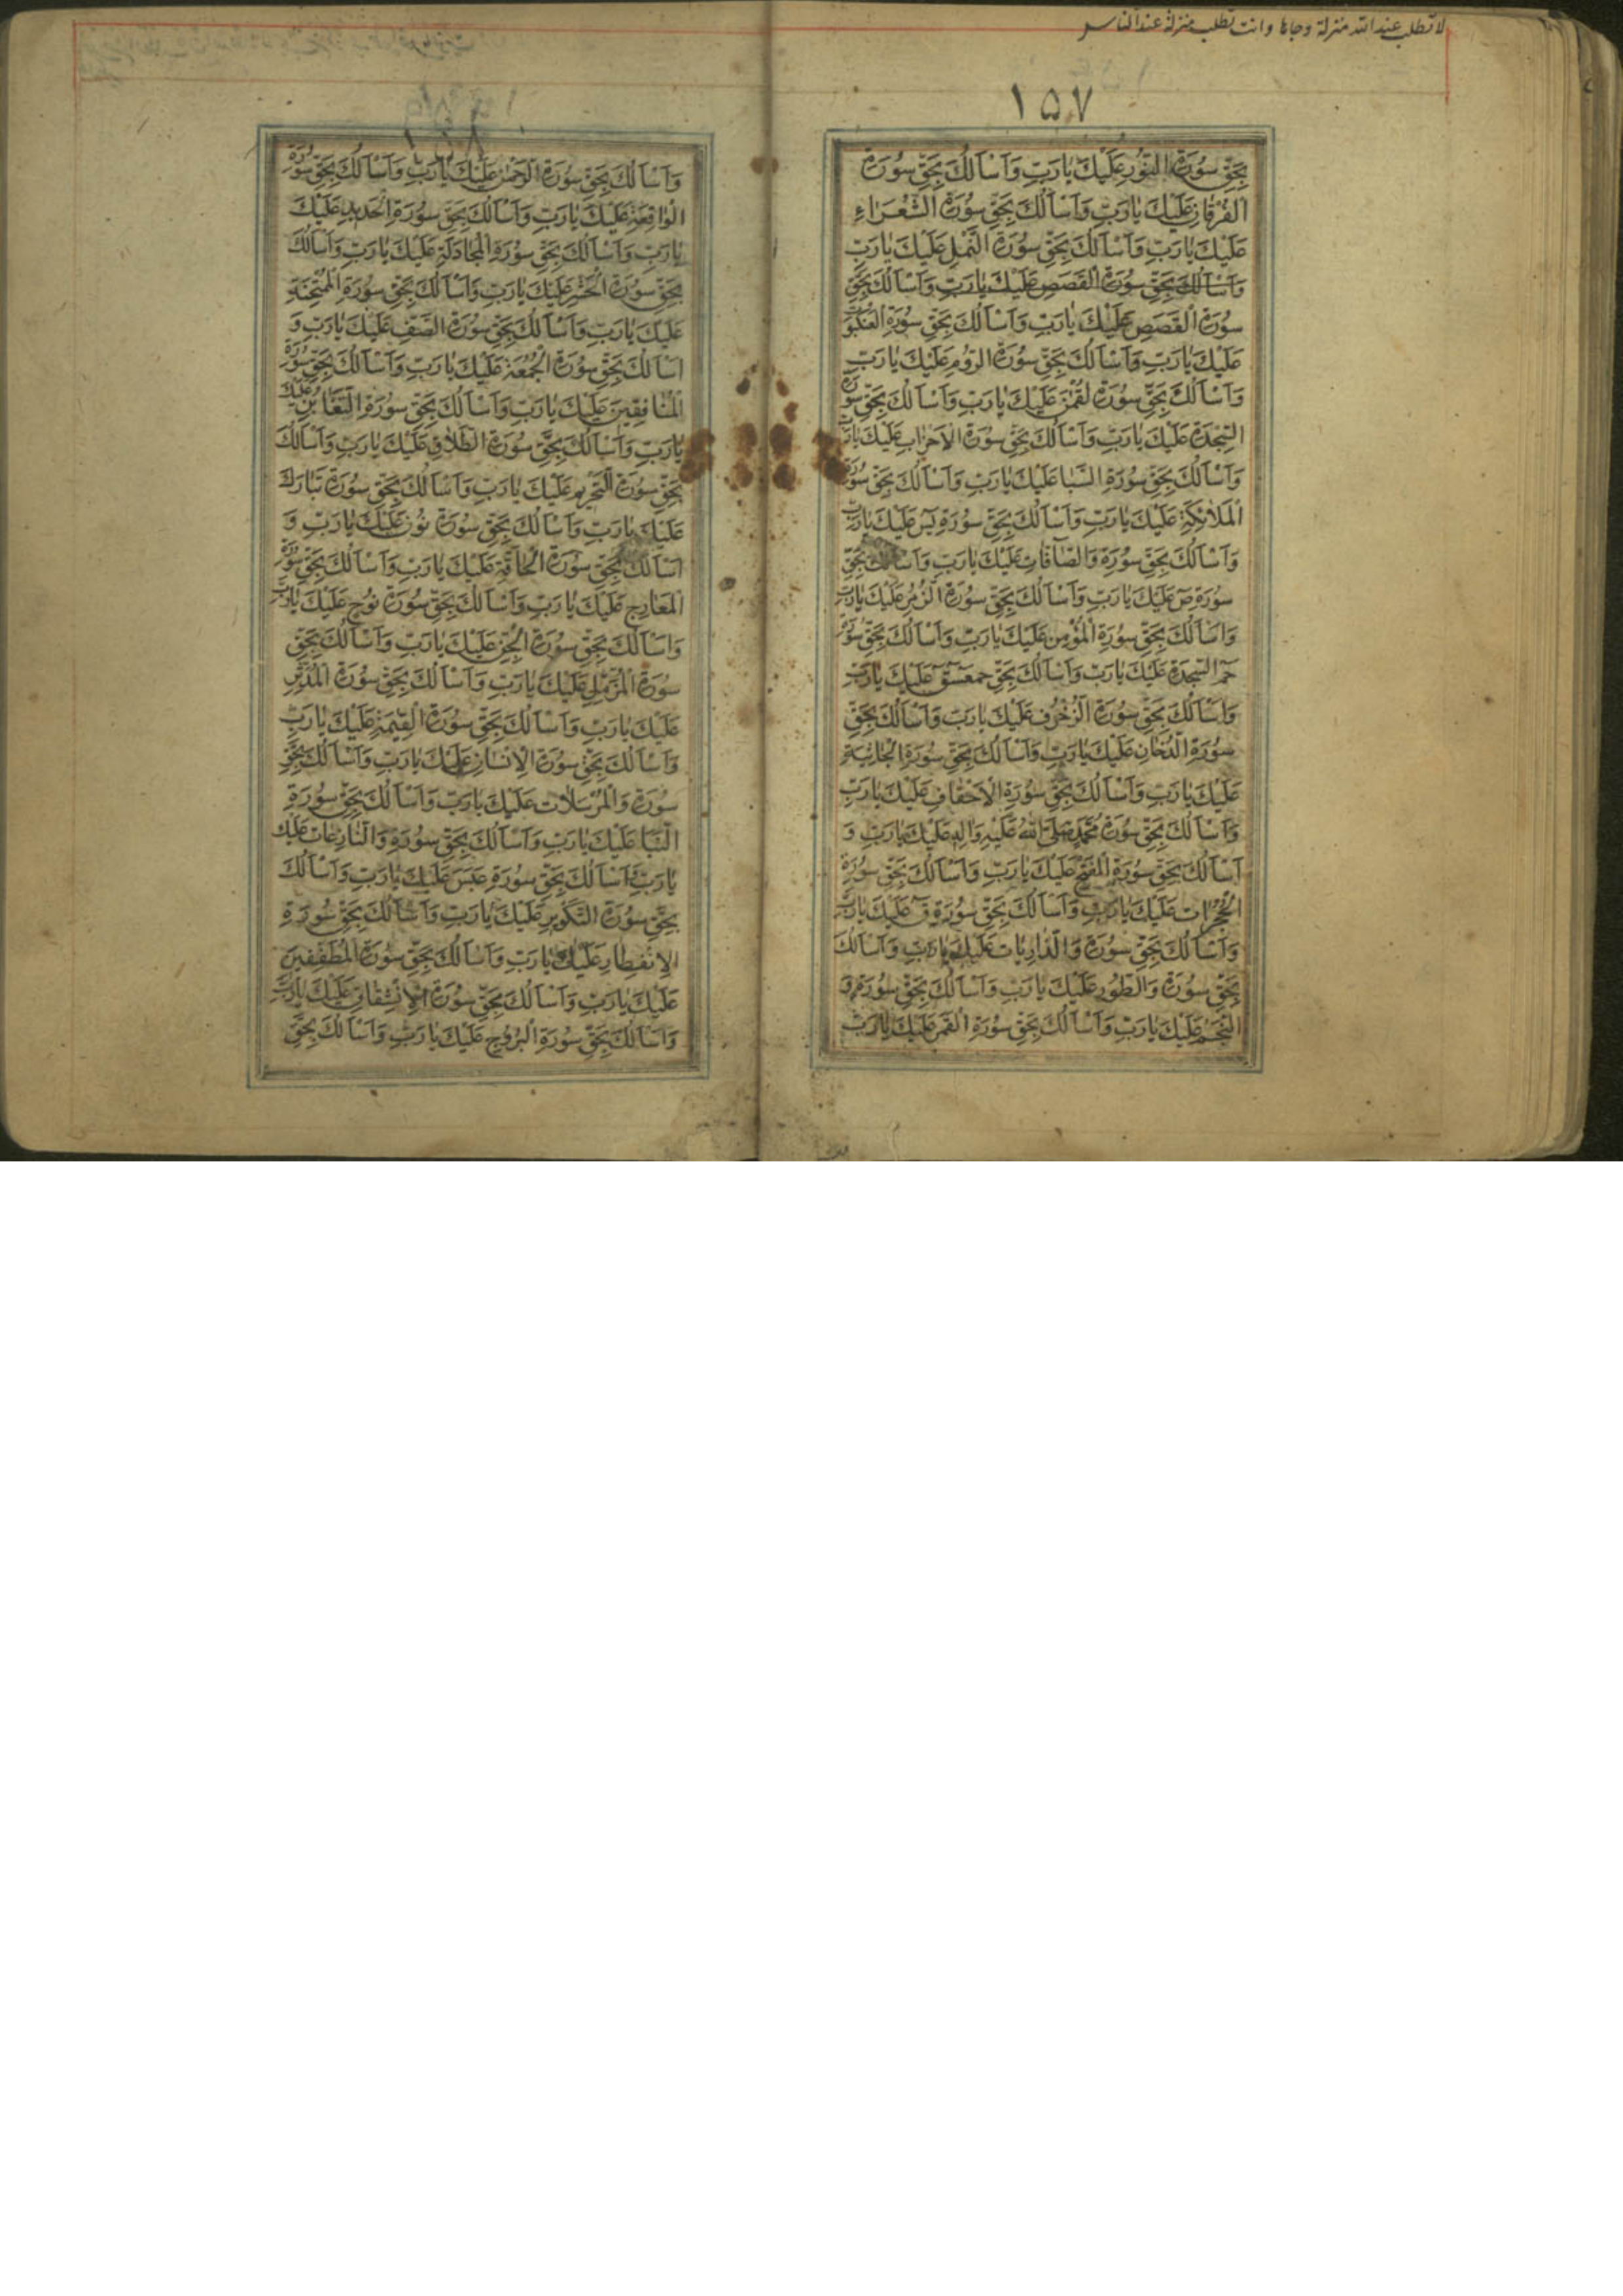 لا تطلب عند الله منزلة وجاها وانت تطلب منزلة عند الناس
١٥٧
بِحَقِّ سُورَةِ النُّورِ عَلَيْكَ يَا رَبِّ وَاَسْاَلُكَ بِحَقِّ سُورَةِ
الْفُرْقَانِ عَلَيْكَ يَا رَبِّ وَاَسْاَلُكَ بِحَقِّ سُورَةِ الشُّعَرَاءِ
عَلَيْكَ يَا رَبِّ وَاَسْاَلُكَ بِحَقِّ سُورَةِ النَّمْلِ عَلَيْكَ يَا رَبِّ
وَاَسْاَلُكَ بِحَقِّ سُورَةِ الْقَصَصِ عَلَيْكَ يَا رَبِّ وَاَسْاَلُكَ بِحَقِّ
سُورَةِ الْقَصَصِ عَلَيْكَ يَا رَبِّ وَاَسْاَلُكَ بِحَقِّ سُورَةِ الْعَنْكَبُوتِ
عَلَيْكَ يَا رَبِّ وَاَسْاَلُكَ بِحَقِّ سُورَةِ الرُّومِ عَلَيْكَ يَا رَبِّ
وَاَسْاَلُكَ بِحَقِّ سُورَةِ لُقْمٰنَ عَلَيْكَ يَا رَبِّ وَاَسْاَلُكَ بِحَقِّ سُورَةِ
السَّجْدَةِ عَلَيْكَ يَا رَبِّ وَاَسْاَلُكَ بِحَقِّ سُورَةِ الْاَحْزَابِ عَلَيْكَ يَا رَبِّ
وَاَسْاَلُكَ بِحَقِّ سُورَةِ السَّبَا عَلَيْكَ يَا رَبِّ وَاَسْاَلُكَ بِحَقِّ سُورَةِ
الْمَلَائِكَةِ عَلَيْكَ يَا رَبِّ وَاَسْاَلُكَ بِحَقِّ سُورَةِ يٰسٓ عَلَيْكَ يَا رَبِّ
وَاَسْاَلُكَ بِحَقِّ سُورَةِ وَالصَّافَّاتِ عَلَيْكَ يَا رَبِّ وَاَسْاَلُكَ بِحَقِّ
سُورَةِ صٓ عَلَيْكَ يَا رَبِّ وَاَسْاَلُكَ بِحَقِّ سُورَةِ الزُّمَرِ عَلَيْكَ يَا رَبِّ
وَاَسْاَلُكَ بِحَقِّ سُورَةِ الْمُؤْمِنِ عَلَيْكَ يَا رَبِّ وَاَسْاَلُكَ بِحَقِّ سُورَةِ
حٰمٓ السَّجْدَةِ عَلَيْكَ يَا رَبِّ وَاَسْاَلُكَ بِحَقِّ حٰمٓعٓسٓقٓ عَلَيْكَ يَا رَبِّ
وَاَسْاَلُكَ بِحَقِّ سُورَةِ الزُّخْرُفِ عَلَيْكَ يَا رَبِّ وَاَسْاَلُكَ بِحَقِّ
سُورَةِ الدُّخَانِ عَلَيْكَ يَا رَبِّ وَاَسْاَلُكَ بِحَقِّ سُورَةِ الْجَاثِيَةِ
عَلَيْكَ يَا رَبِّ وَاَسْاَلُكَ بِحَقِّ سُورَةِ الْاَحْقَافِ عَلَيْكَ يَا رَبِّ
وَاَسْاَلُكَ بِحَقِّ سُورَةِ مُحَمَّدٍ صَلَّى اللّٰهُ عَلَيْهِ وَاٰلِهِ عَلَيْكَ يَا رَبِّ وَ
اَسْاَلُكَ بِحَقِّ سُورَةِ الْفَتْحِ عَلَيْكَ يَا رَبِّ وَاَسْاَلُكَ بِحَقِّ سُورَةِ
الْحُجُرَاتِ عَلَيْكَ يَا رَبِّ وَاَسْاَلُكَ بِحَقِّ سُورَةِ قٓ عَلَيْكَ يَا رَبِّ
وَاَسْاَلُكَ بِحَقِّ سُورَةِ وَالذَّارِيَاتِ عَلَيْكَ يَا رَبِّ وَاَسْاَلُكَ
بِحَقِّ سُورَةِ وَالطُّورِ عَلَيْكَ يَا رَبِّ وَاَسْاَلُكَ بِحَقِّ سُورَةِ وَ
النَّجْمِ عَلَيْكَ يَا رَبِّ وَاَسْاَلُكَ بِحَقِّ سُورَةِ الْقَمَرِ عَلَيْكَ يَا رَبِّ
١٥٨
وَاَسْاَلُكَ بِحَقِّ سُورَةِ الرَّحْمٰنِ عَلَيْكَ يَا رَبِّ وَاَسْاَلُكَ بِحَقِّ سُورَةِ
الْوَاقِعَةِ عَلَيْكَ يَا رَبِّ وَاَسْاَلُكَ بِحَقِّ سُورَةِ الْحَدِيدِ عَلَيْكَ
يَا رَبِّ وَاَسْاَلُكَ بِحَقِّ سُورَةِ الْمُجَادَلَةِ عَلَيْكَ يَا رَبِّ وَاَسْاَلُكَ
بِحَقِّ سُورَةِ الْحَشْرِ عَلَيْكَ يَا رَبِّ وَاَسْاَلُكَ بِحَقِّ سُورَةِ الْمُمْتَحِنَةِ
عَلَيْكَ يَا رَبِّ وَاَسْاَلُكَ بِحَقِّ سُورَةِ الصَّفِّ عَلَيْكَ يَا رَبِّ وَ
اَسْاَلُكَ بِحَقِّ سُورَةِ الْجُمُعَةِ عَلَيْكَ يَا رَبِّ وَاَسْاَلُكَ بِحَقِّ سُورَةِ
الْمُنَافِقِينَ عَلَيْكَ يَا رَبِّ وَاَسْاَلُكَ بِحَقِّ سُورَةِ التَّغَابُنِ عَلَيْكَ
يَا رَبِّ وَاَسْاَلُكَ بِحَقِّ سُورَةِ الطَّلَاقِ عَلَيْكَ يَا رَبِّ وَاَسْاَلُكَ
بِحَقِّ سُورَةِ التَّحْرِيمِ عَلَيْكَ يَا رَبِّ وَاَسْاَلُكَ بِحَقِّ سُورَةِ تَبَارَكَ
عَلَيْكَ يَا رَبِّ وَاَسْاَلُكَ بِحَقِّ سُورَةِ نُون عَلَيْكَ يَا رَبِّ وَ
اَسْاَلُكَ بِحَقِّ سُورَةِ الْحَاقَّةِ عَلَيْكَ يَا رَبِّ وَاَسْاَلُكَ بِحَقِّ سُورَةِ
الْمَعَارِجِ عَلَيْكَ يَا رَبِّ وَاَسْاَلُكَ بِحَقِّ سُورَةِ نُوحٍ عَلَيْكَ يَا رَبِّ
وَاَسْاَلُكَ بِحَقِّ سُورَةِ الْجِنِّ عَلَيْكَ يَا رَبِّ وَاَسْاَلُكَ بِحَقِّ
سُورَةِ الْمُزَّمِّلِ عَلَيْكَ يَا رَبِّ وَاَسْاَلُكَ بِحَقِّ سُورَةِ الْمُدَّثِّرِ
عَلَيْكَ يَا رَبِّ وَاَسْاَلُكَ بِحَقِّ سُورَةِ الْقِيٰمَةِ عَلَيْكَ يَا رَبِّ
وَاَسْاَلُكَ بِحَقِّ سُورَةِ الْاِنْسَانِ عَلَيْكَ يَا رَبِّ وَاَسْاَلُكَ بِحَقِّ
سُورَةِ وَالْمُرْسَلَاتِ عَلَيْكَ يَا رَبِّ وَاَسْاَلُكَ بِحَقِّ سُورَةِ
النَّبَاِ عَلَيْكَ يَا رَبِّ وَاَسْاَلُكَ بِحَقِّ سُورَةِ وَالنَّازِعَاتِ عَلَيْكَ
يَا رَبِّ وَاَسْاَلُكَ بِحَقِّ سُورَةِ عَبَسَ عَلَيْكَ يَا رَبِّ وَاَسْاَلُكَ
بِحَقِّ سُورَةِ التَّكْوِيرِ عَلَيْكَ يَا رَبِّ وَاَسْاَلُكَ بِحَقِّ سُورَةِ
الْاِنْفِطَارِ عَلَيْكَ يَا رَبِّ وَاَسْاَلُكَ بِحَقِّ سُورَةِ الْمُطَفِّفِينَ
عَلَيْكَ يَا رَبِّ وَاَسْاَلُكَ بِحَقِّ سُورَةِ الْاِنْشِقَاقِ عَلَيْكَ يَا رَبِّ
وَاَسْاَلُكَ بِحَقِّ سُورَةِ الْبُرُوجِ عَلَيْكَ يَا رَبِّ وَاَسْاَلُكَ بِحَقِّ